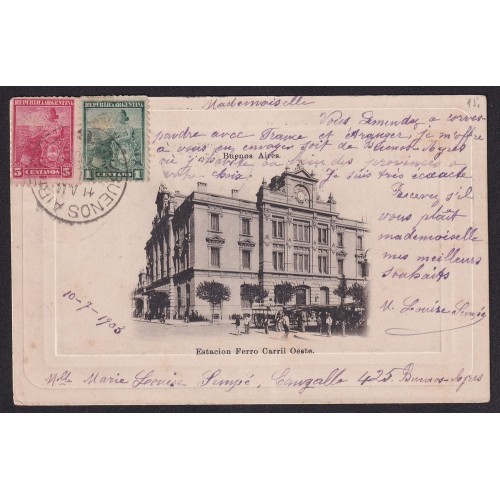 REPUBLICA ARGENTINA
5 CENTAVOS 5
REPUBLICA ARGENTINA
1 CENTAVOS 1
BUENOS AIRES
Mademoiselle
Vous demandez a corres-
pondre avec France et étranger, je m'offre
a vous en envoyer soit de Buenos-Ayres
où j'habite ou bien des provinces a
votre choix. Je suis très exacte
Recevez s'il
vous plaît
mademoiselle
mes meilleurs
souhaits
M. Louise Sempé
Buenos Aires.
10-7-1903
Estacion Ferro Carril Oeste.
Mlle Marie Louise Sempé, Cangallo 425 Buenos-Ayres